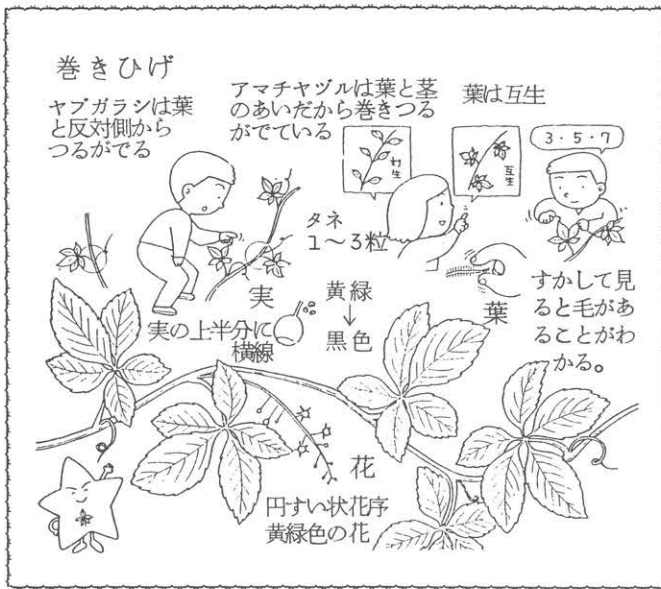 巻きひげ
ヤブガラシは葉
と反対側から
つるがでる
アマチャヅルは葉と茎
のあいだから巻きつる
がでている
葉は互生
互生
3・5・7
タネ
1〜3粒
実
実の上半分に
横線
黄緑
↓
黒色
葉
すかして見
ると毛があ
ることがわ
かる。
花
円すい状花序
黄緑色の花